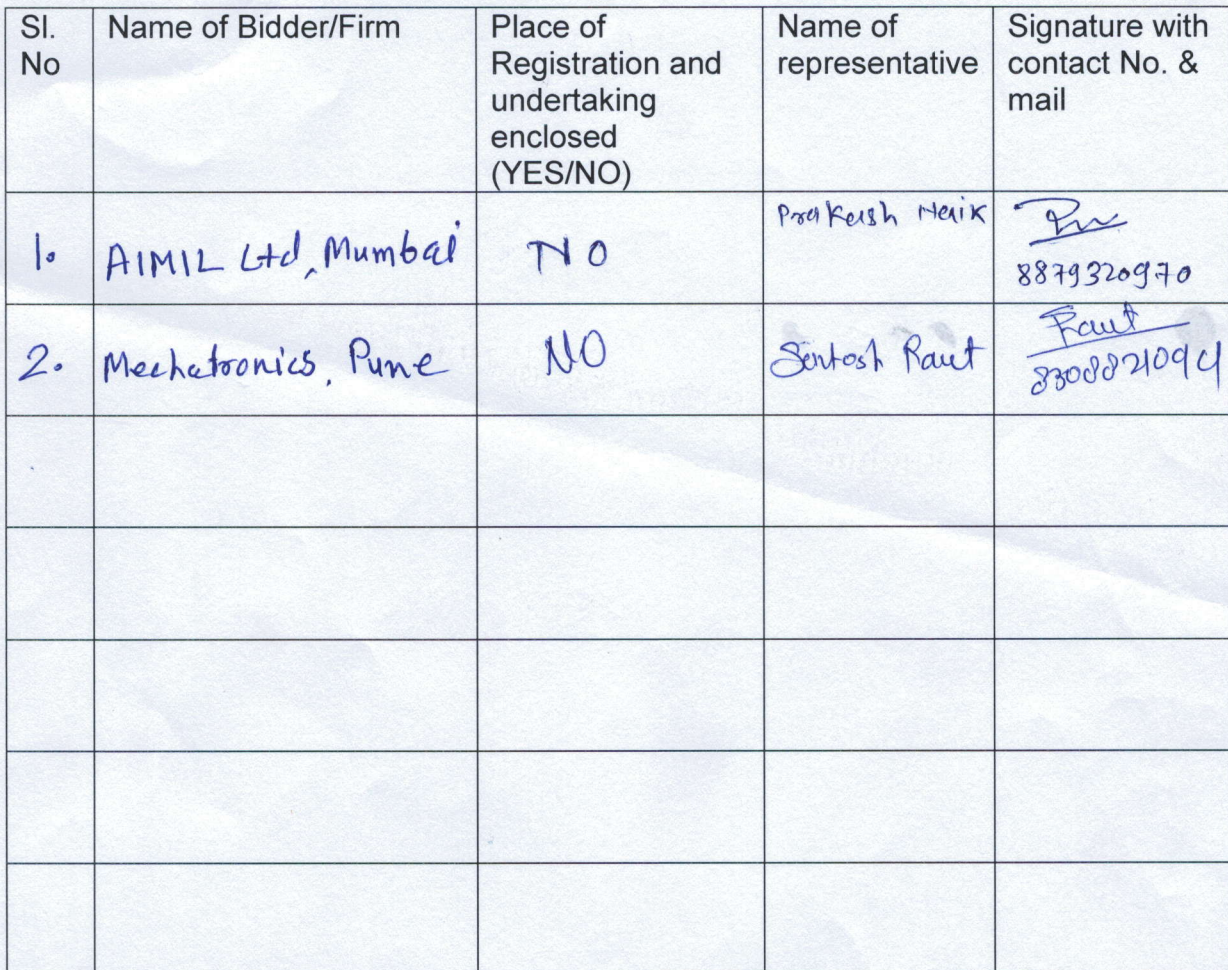 Sl. No
Name of Bidder/Firm
Place of Registration and undertaking enclosed (YES/NO)
Name of representative
Signature with contact No. & mail
1.
AIMIL Ltd, Mumbai
NO
Prakash Naik
8879320970
2.
Mechatronics, Pune
NO
Santosh Raut
Raut
8308821094